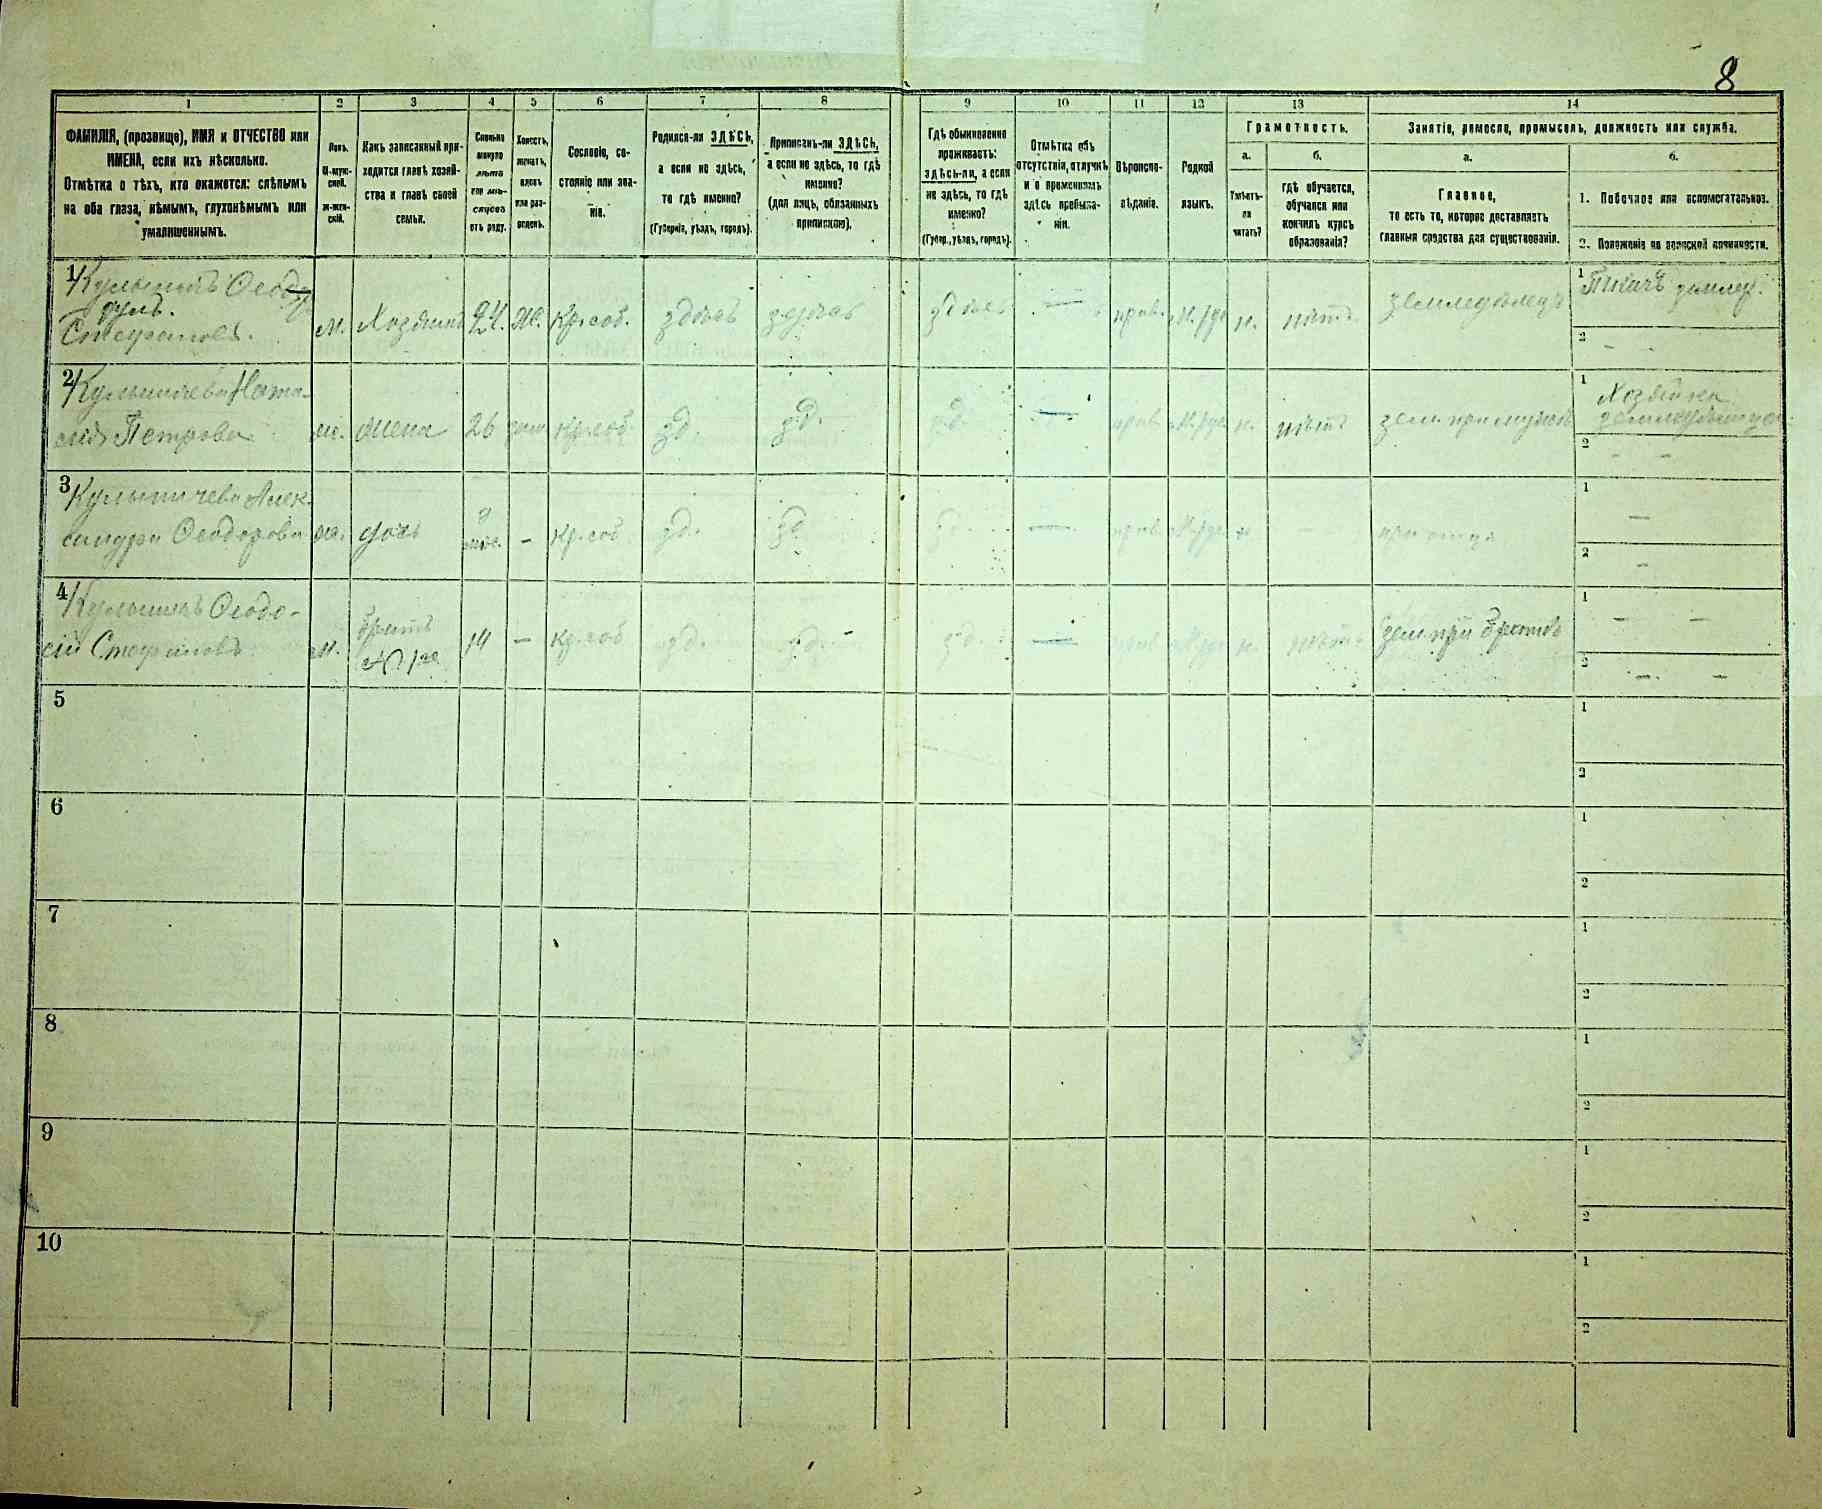 8
1 2 3 4 5 6 7 8 9 10 11 12 13 14
ФАМИЛІЯ, (прозвище), ИМЯ и ОТЧЕСТВО или
ИМЕНА, если ихъ нѣсколько.
Отмѣтка о тѣхъ, кто окажется: слѣпымъ
на оба глаза, нѣмымъ, глухонѣмымъ или
умалишеннымъ.
Полъ.
М-муж-
ской.
Ж-жен-
скій.
Какъ записанный при-
ходится главѣ хозяй-
ства и главѣ своей
семьи.
Сколько
минуло
лѣтъ
или мѣ-
сяцевъ
отъ роду.
Холостъ,
женатъ,
вдовъ
или раз-
веденъ.
Сословіе, со-
стояніе или зва-
ніе.
Родился-ли ЗДѢСЬ,
а если не здѣсь,
то гдѣ именно?
(Губернія, уѣздъ, городъ).
Приписанъ-ли ЗДѢСЬ,
а если не здѣсь, то гдѣ
именно?
(для лицъ, обязанныхъ
припискою).
Гдѣ обыкновенно
проживаетъ:
здѣсь-ли, а если
не здѣсь, то гдѣ
именно?
(Губер., уѣздъ, городъ).
Отмѣтка объ
отсутствіи, отлучкѣ
и о временномъ
здѣсь пребыва-
ніи.
Вѣроиспо-
вѣданіе.
Родной
языкъ.
Грамотность.
а. б.
Умѣетъ-
ли
читать?
гдѣ обучается,
обучался или
кончилъ курсъ
образованія?
Занятіе, ремесло, промыселъ, должность или служба.
а. б.
Главное,
то есть то, которое доставляетъ
главныя средства для существованія.
1. Побочное или вспомогательное.
2. Положеніе по воинской повинности.
1 Ѳеоду
дулъ.
м. Хозяинъ 24. же. Кр. соб. здѣсь здѣсь здѣсь — прав. н. нѣтъ земледѣлецъ 1
2 — —
2 Кулыгичева Ната-
лія Петрова
же. жена 26 зам кр. соб. зд. зд. зд. — прав. н. нѣтъ зем. при мужѣ
1 Хозяйка
2 — —
3 Кулыгичева Алек-
сандра Ѳеодорова
же. дочь — кр. соб. зд. зд. зд. — прав. н — при отцѣ
1 —
2 —
4 Ѳеодо-
сій
м. братъ 14 — кр. соб зд. зд. зд. — прав. н. нѣтъ зем. при братѣ
1 — —
2 — —
5 1
2
6 1
2
7 1
2
8 1
2
9 1
2
10 1
2